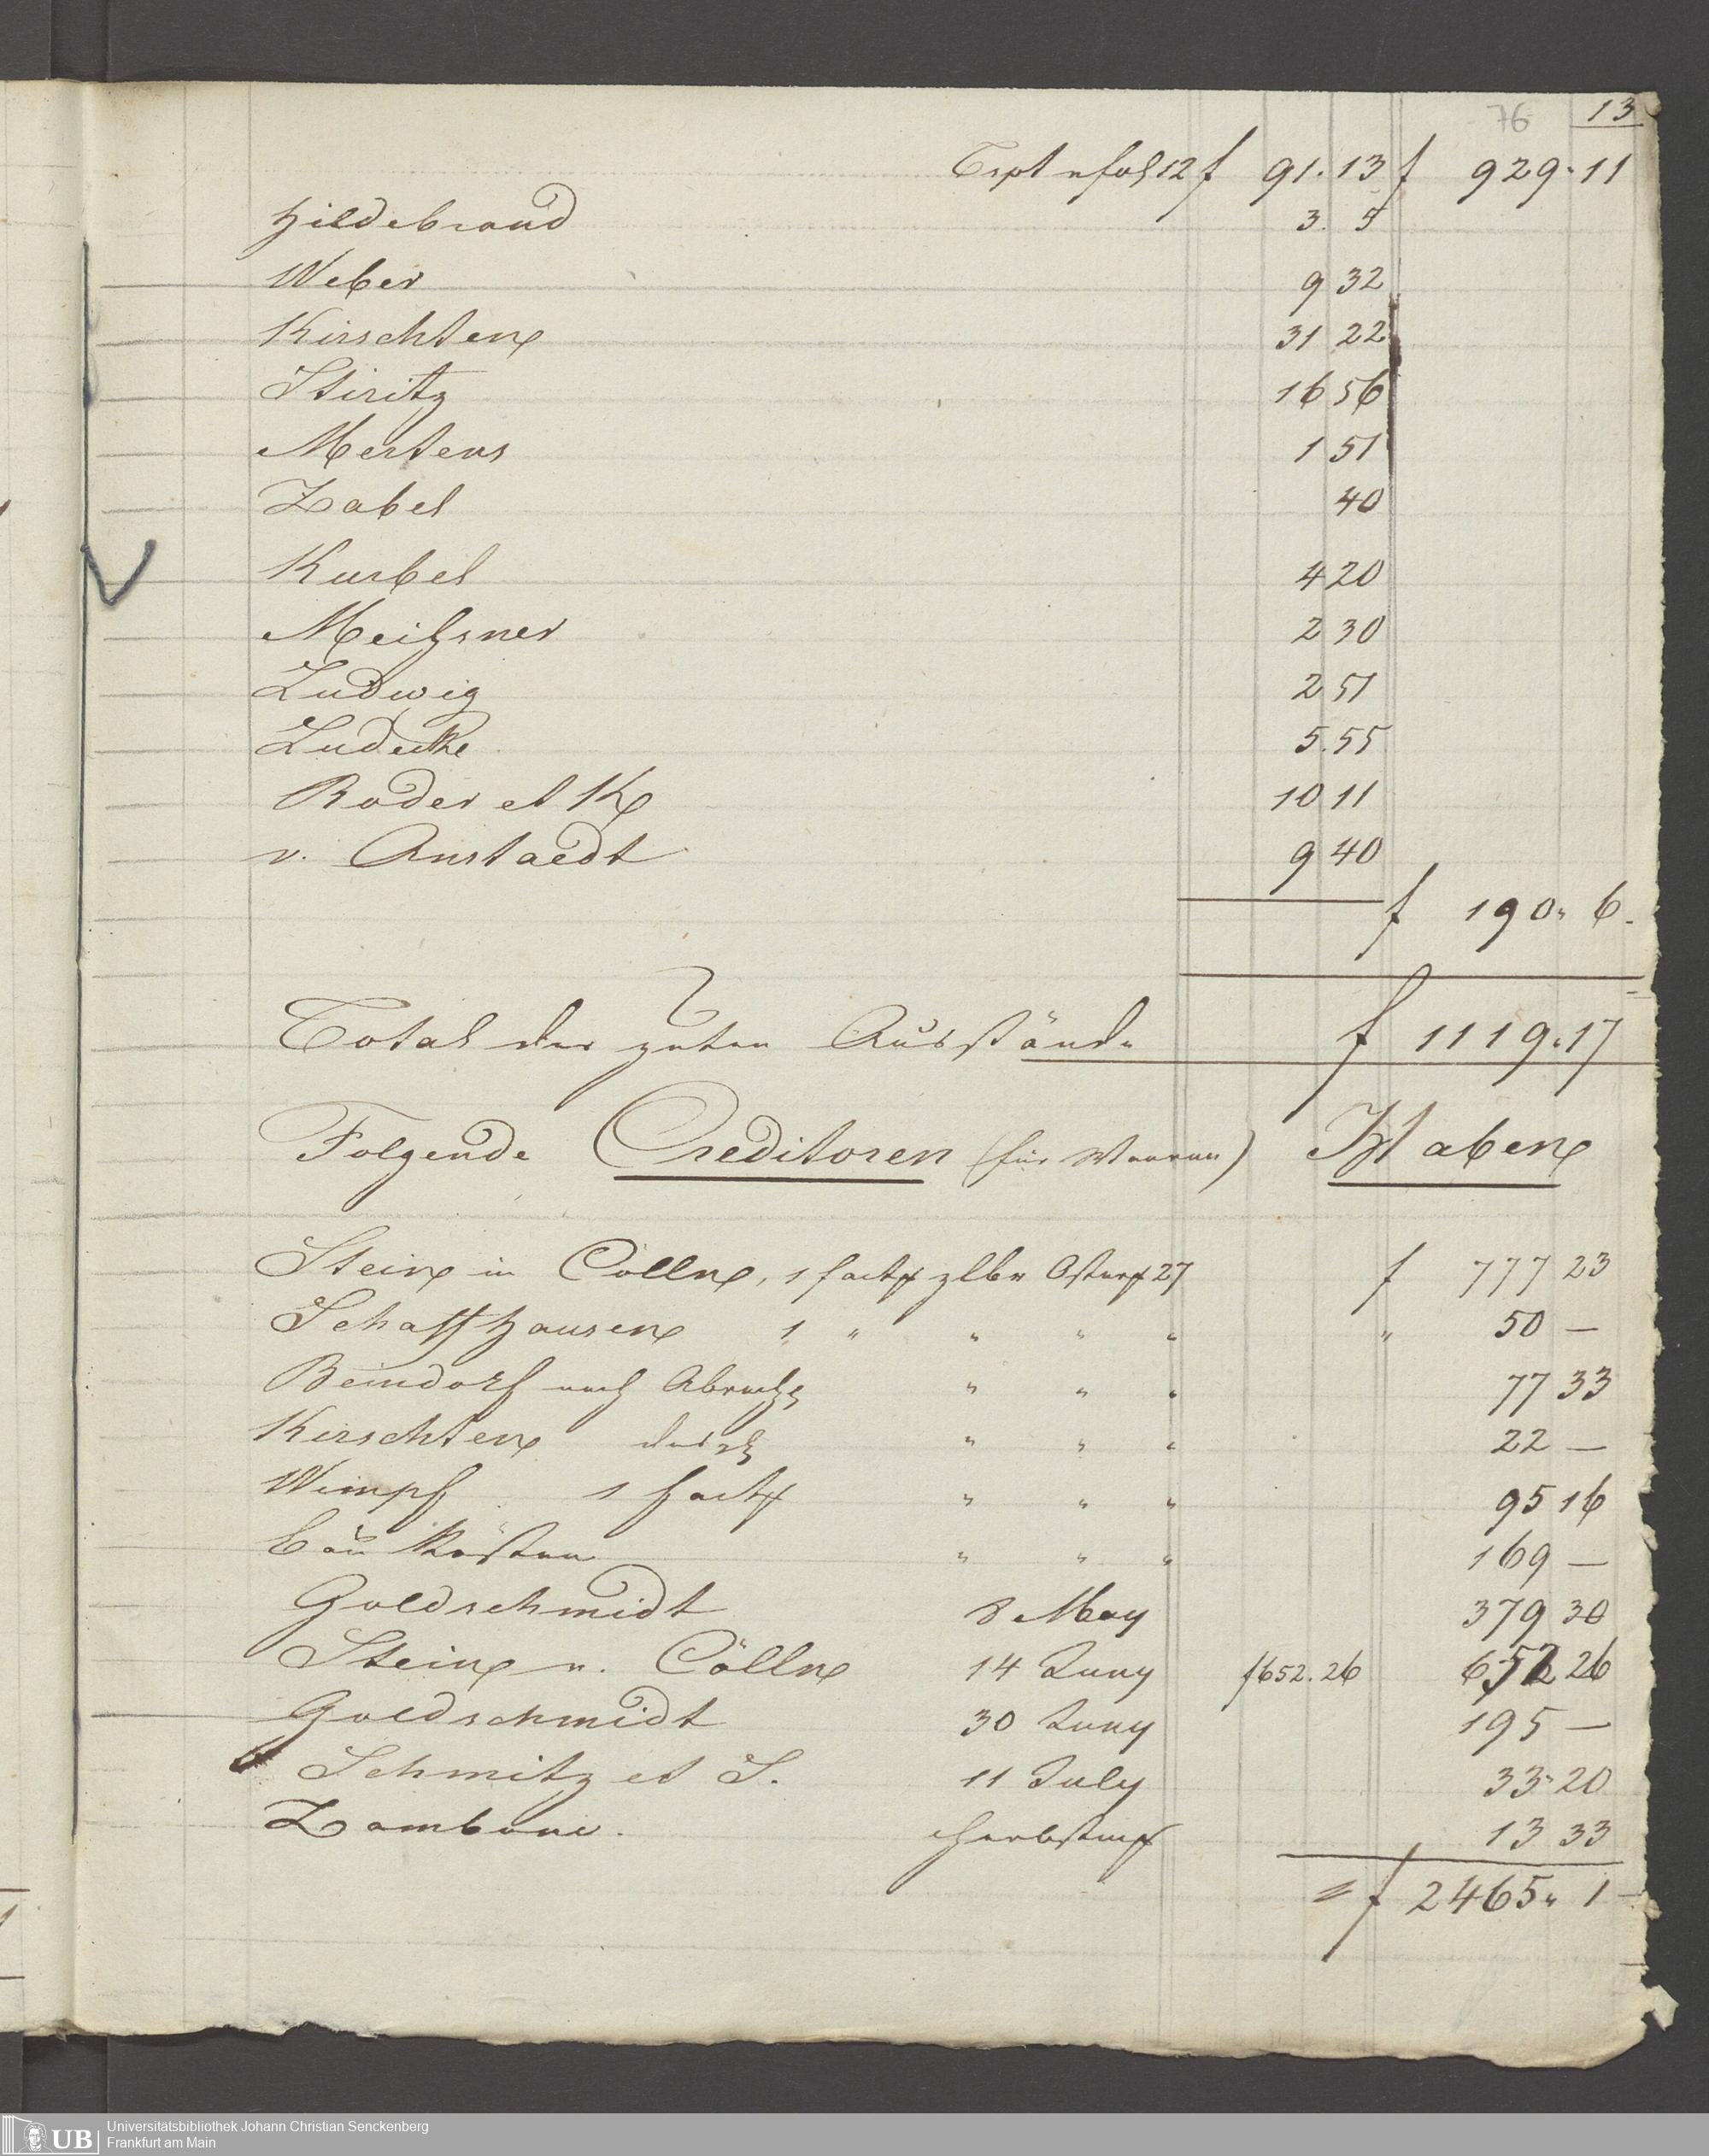 76 13
Tspt v fol 12 f 91. 13 f 929. 11
Hildebrand 3. 5
Weber 9 32
Kirschten 31 22
Stiritz 16 56
Mertens 1 51
Zabel 40
Kurbel 4 20
Meihsner 2 30
Ludwig 2 51
Ludecke 5. 55
Roder et K 10 11
v. Anstaedt 9 40
f 190. 6.
Total der guten Ausstände f 1119. 17
Folgende Creditoren (für Waaren) Haben
Stein in Cölln, 1 fact zlbr Osterm 27 f 777 23
Schaffhausen 1 " " " " " 50 —
Beindorf nach " " " 77 33
Kirschten " " " 22 —
Wimpf 1 fact " " " 95 16
Bau Kosten " " " 169 —
Goldschmidt 8 May 379 30
Stein v. Cölln 14 Juny f 652. 26 652 26
Goldschmidt 30 Juny 195 —
Schmitz et S. 11 July 33. 20
Zamboni. Herbstm 13 33
= f 2465. 1 —
UB Universitätsbibliothek Johann Christian Senckenberg
Frankfurt am Main